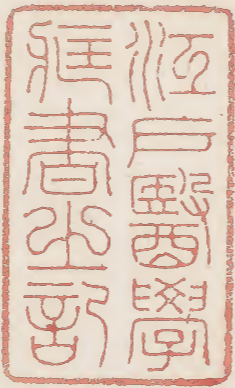 江戸醫學
藏書之記